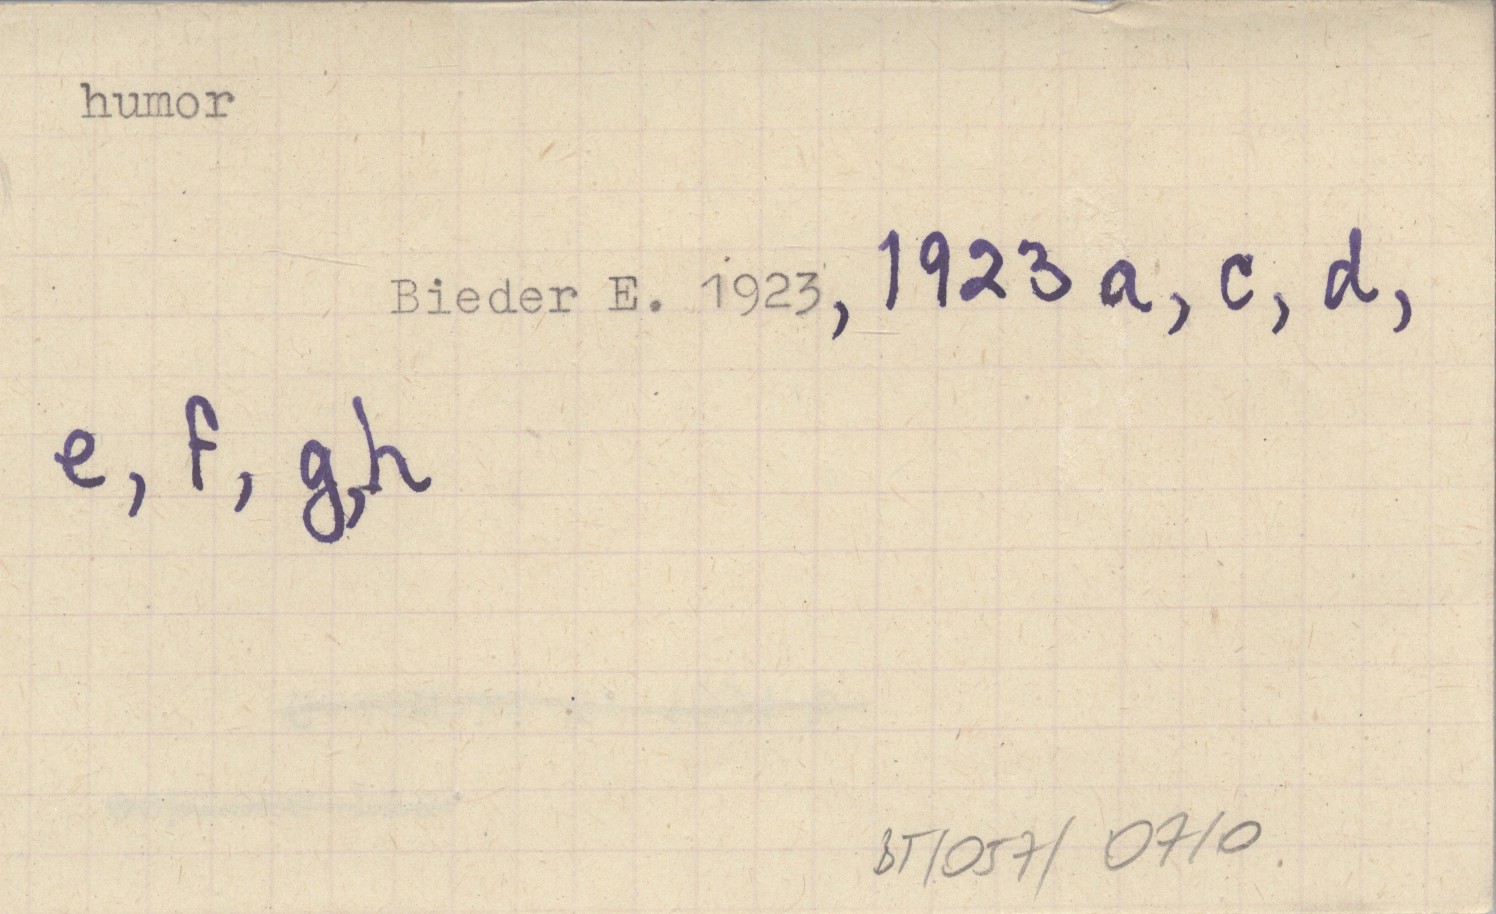 humor
Bieder E. 1923, 1923 a, c, d,
e, f, g, h
BT/057/0710.